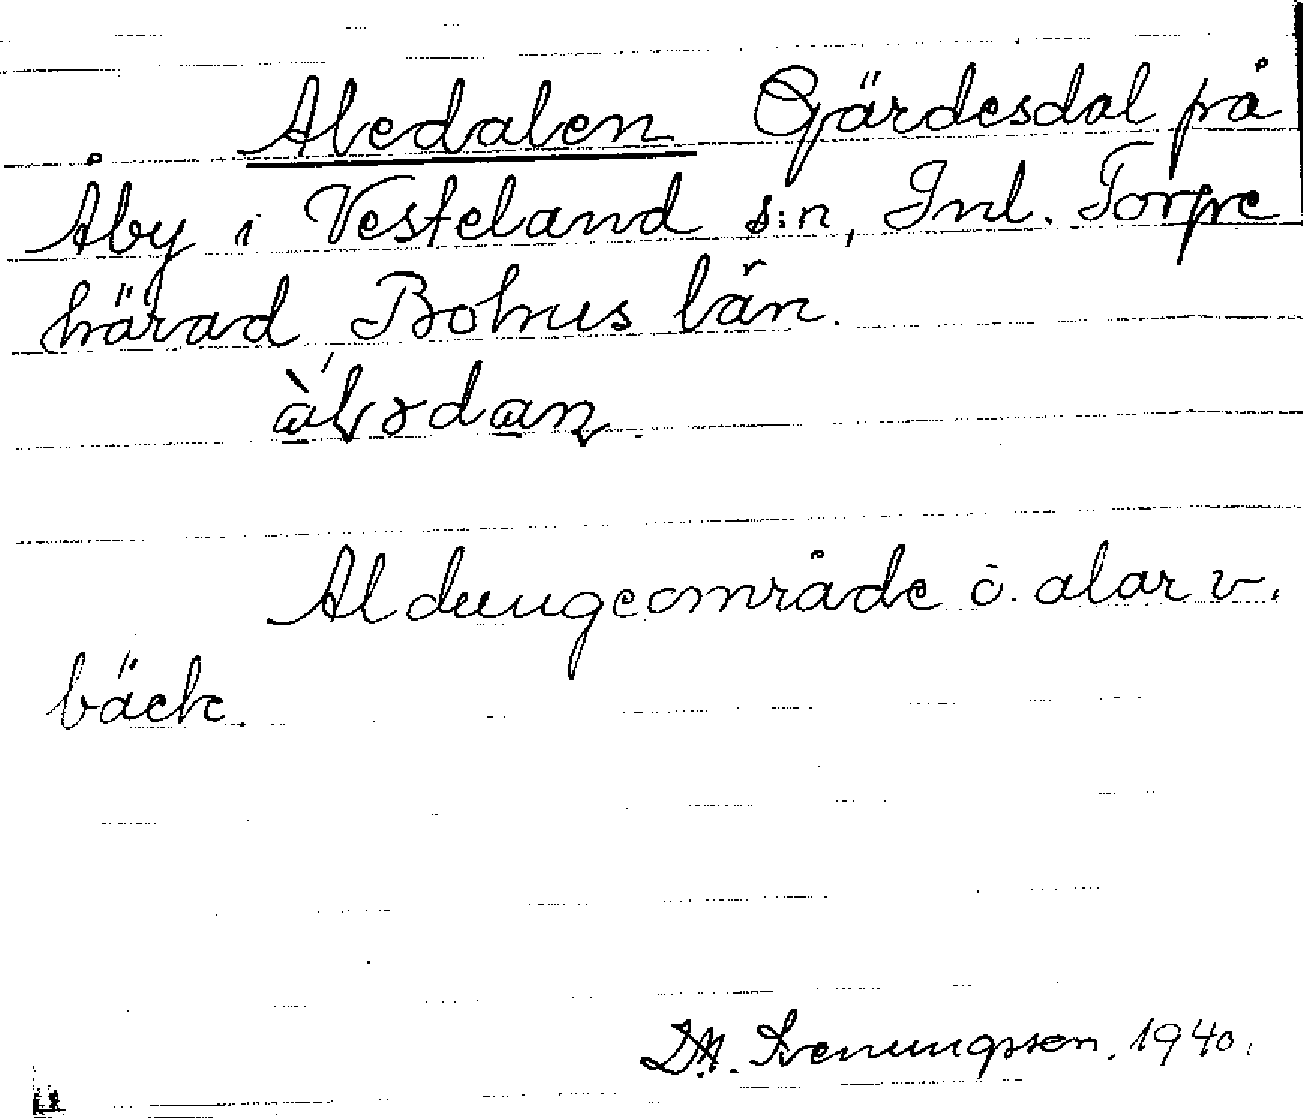 Aledalen Gärdesdal på
Åby i Vesteland s:n, Inl. Torpe
härad, Bohus län.
Aldungeområde o. alar v.
bäck.
D.A. Svenungsson. 1940.